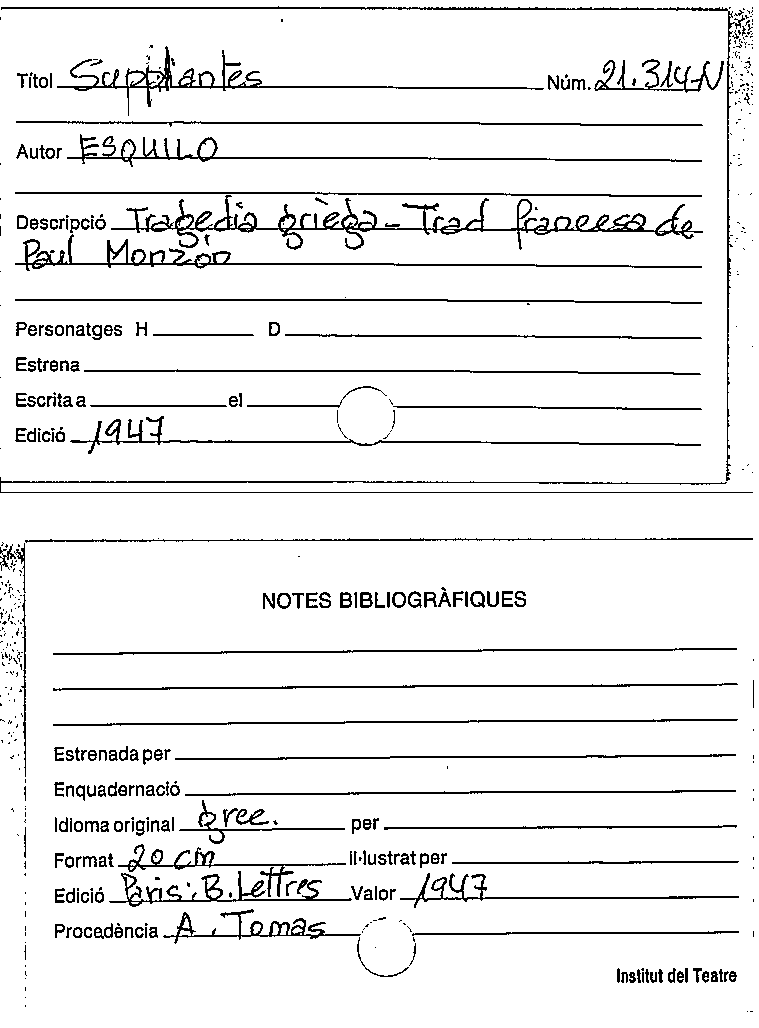 Títol Suppliantes Núm. 21.314-N
Autor ESQUILO
Descripció Tragèdia grièga - Trad francesa de
Paul Monzón
Personatges H D
Estrena
Escrita a el
Edició 1947
NOTES BIBLIOGRÀFIQUES
Estrenada per
Enquadernació
Idioma original grec. per
Format 20 cm il·lustrat per
Edició Paris: B. Lettres Valor 1947
Procedència A. Tomas
Institut del Teatre